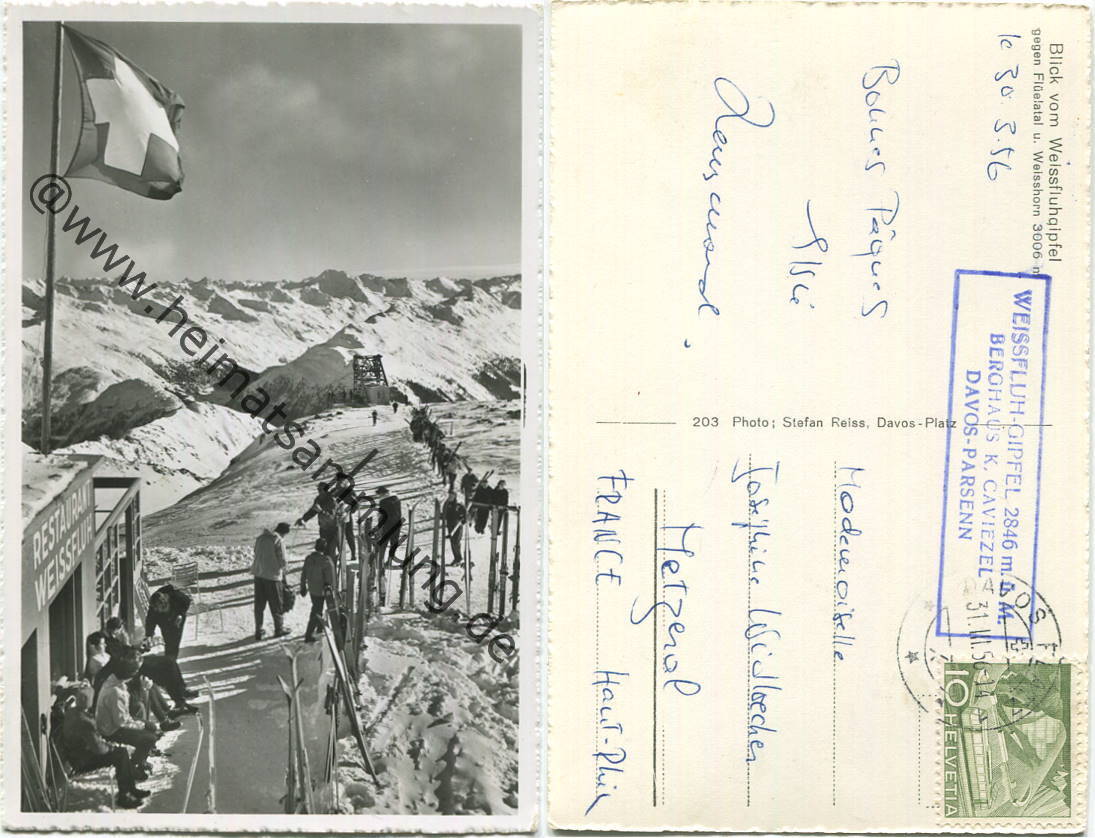 @www.heimatsammlung.de
RESTAURANT
WEISSFLUH
Blick vom Weissfluhgipfel
gegen Flüelatal u. Weisshorn 3006 m
le 30.3.56
Bonnes Pâques
203 Photo; Stefan Reiss, Davos-Platz
WEISSFLUH-GIPFEL 2846 m.ü.M.
BERGHAUS K. CAVIEZEL
DAVOS-PARSENN
Mademoiselle
Joséphine Widloecher
Metzeral
FRANCE Haut-Rhin
31.III.56
10 HELVETIA